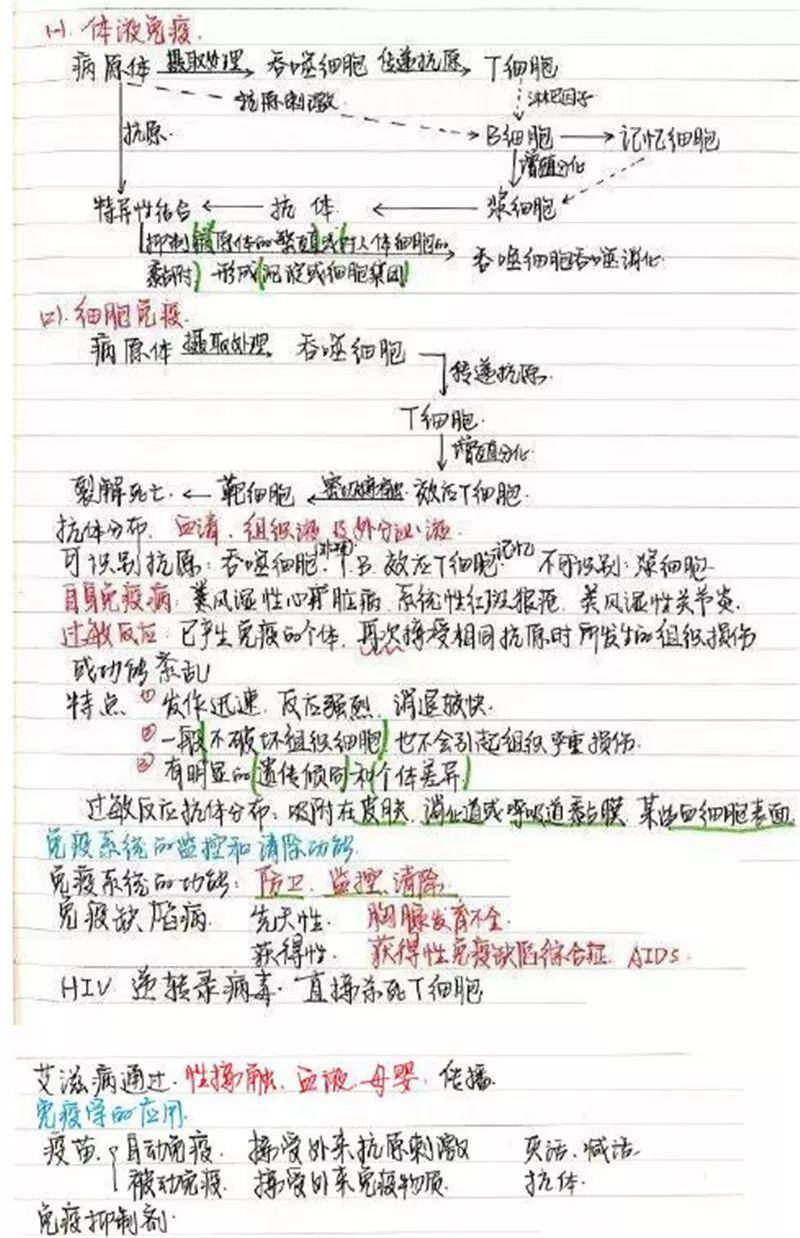 (一). 体液免疫.
病原体 摄取处理 吞噬细胞 传递抗原 T细胞
抗原刺激 淋巴因子
抗原. B细胞 记忆细胞
增殖分化
特异性结合 抗体 浆细胞
抑制(病原体的繁殖)或(对人体细胞的
黏附) 形成(沉淀或细胞集团) 吞噬细胞吞噬消化.
(二). 细胞免疫.
病原体 摄取处理 吞噬细胞
传递抗原.
T细胞.
增殖分化.
裂解死亡. 靶细胞 密切接触 效应T细胞.
抗体分布. 血清、组织液及外分泌液.
可识别抗原: 吞噬细胞. T. B 效应T细胞. 记忆 不可识别: 浆细胞
自身免疫病: 类风湿性心脏病. 系统性红斑狼疮. 类风湿性关节炎.
过敏反应: 已产生免疫的个体, 再次接受相同抗原时所发生的组织损伤
或功能紊乱
特点. ① 发作迅速. 反应强烈. 消退较快.
② 一般(不破坏组织细胞) 也不会引起组织严重损伤.
③ 有明显的(遗传倾向)和(个体差异)
过敏反应抗体分布: 吸附在皮肤. 消化道或呼吸道黏膜. 某些血细胞表面
免疫系统的监控和清除功能.
免疫系统的功能: 防卫. 监控. 清除.
免疫缺陷病. 先天性. 胸腺发育不全.
获得性. 获得性免疫缺陷综合征. AIDS.
HIV 逆转录病毒. 直接杀死T细胞
艾滋病通过. 性接触. 血液. 母婴. 传播.
免疫学的应用.
疫苗. 自动免疫. 接受外来抗原刺激 灭活. 减活.
被动免疫. 接受外来免疫物质. 抗体.
免疫抑制剂.